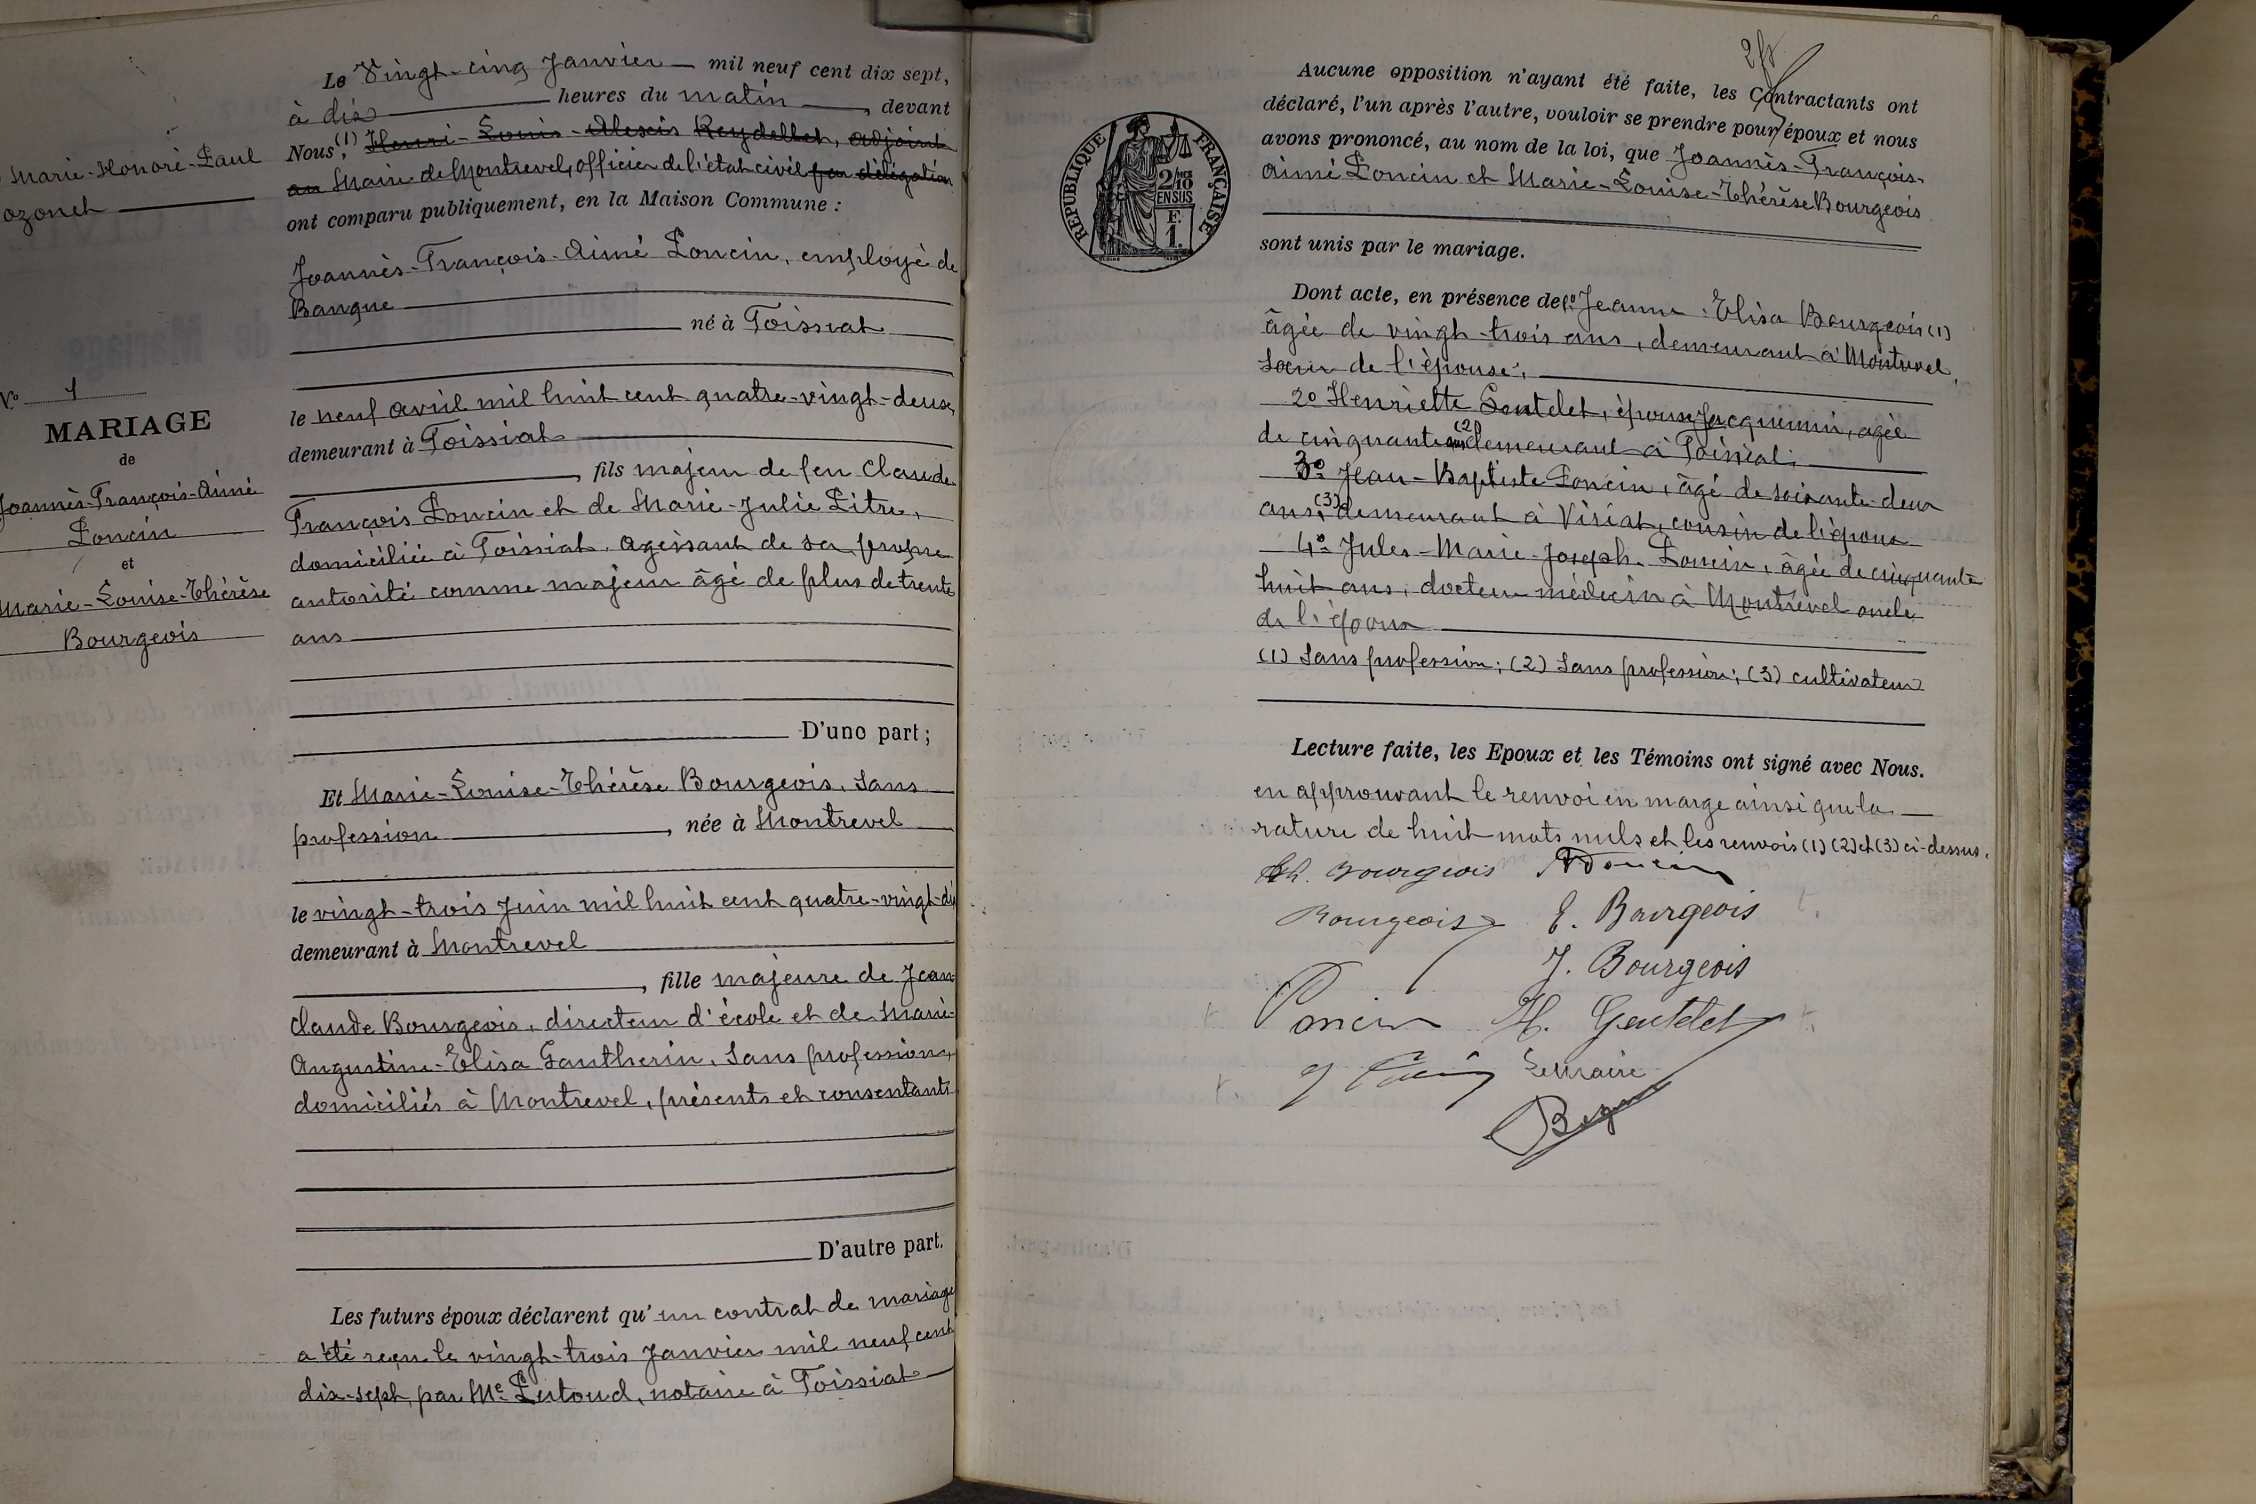 Marie-Honoré-Paul
ozonet
No 1
MARIAGE
de
Joannès-François-Aimé
Poncin
et
Marie-Louise-Thérèse
Bourgeois
Le Vingt-cinq Janvier mil neuf cent dix sept,
à dix heures du matin, devant
Nous, (1) Henri-Louis-Alexis Reydellet, adjoint
au Maire de Montrevel, officier de l'état civil par délégation
ont comparu publiquement, en la Maison Commune :
Joannès-François-Aimé Poncin, employé de
Banque
né à Foissiat
le neuf avril mil huit cent quatre-vingt-deux,
demeurant à Foissiat
, fils majeur de feu Claude
François Poncin et de Marie-Julie Pitre,
domiciliée à Foissiat. agissant de sa propre
autorité comme majeur âgé de plus de trente
ans
D'une part ;
Et Marie-Louise-Thérèse Bourgeois, sans
profession, née à Montrevel
le vingt-trois Juin mil huit cent quatre-vingt-dix
demeurant à Montrevel
, fille majeure de Jean-
Claude Bourgeois, directeur d'école et de Marie-
Augustine-Elisa Gautherin, sans profession,
domiciliés à Montrevel, présents et consentants
D'autre part.
Les futurs époux déclarent qu'un contrat de mariage
a été reçu le vingt-trois Janvier mil neuf cent
dix-sept, par Me Putoud, notaire à Foissiat
RÉPUBLIQUE FRANÇAISE
2/10
EN SUS
F.
1.
Aucune opposition n'ayant été faite, les Contractants ont
déclaré, l'un après l'autre, vouloir se prendre pour époux et nous
avons prononcé, au nom de la loi, que Joannès-François-
Aimé Poncin et Marie-Louise-Thérèse Bourgeois
sont unis par le mariage.
Dont acte, en présence de 1º Jeanne-Elisa Bourgeois (1)
âgée de vingt-trois ans, demeurant à Montrevel,
soeur de l'épouse;
2º Henriette Gentelet, épouse Jacquemin, agée
de cinquante ans (2) demeurant à Foissiat;
3º Jean-Baptiste Poncin, âgé de soixante-deux
ans, (3) demeurant à Viriat, cousin de l'époux
4º Jules-Marie-Joseph Poncin, âgée de cinquante
huit ans, docteur médecin à Montrevel oncle
de l'époux
(1) Sans profession; (2) Sans profession; (3) cultivateur
Lecture faite, les Epoux et les Témoins ont signé avec Nous.
en approuvant le renvoi en marge ainsi que la
rature de huit mots nuls et les renvois (1) (2) et (3) ci-dessus.
Th. Bourgeois Poncin
Bourgeois E. Bourgeois
J. Bourgeois
Poncin H. Gentelet
Le Maire